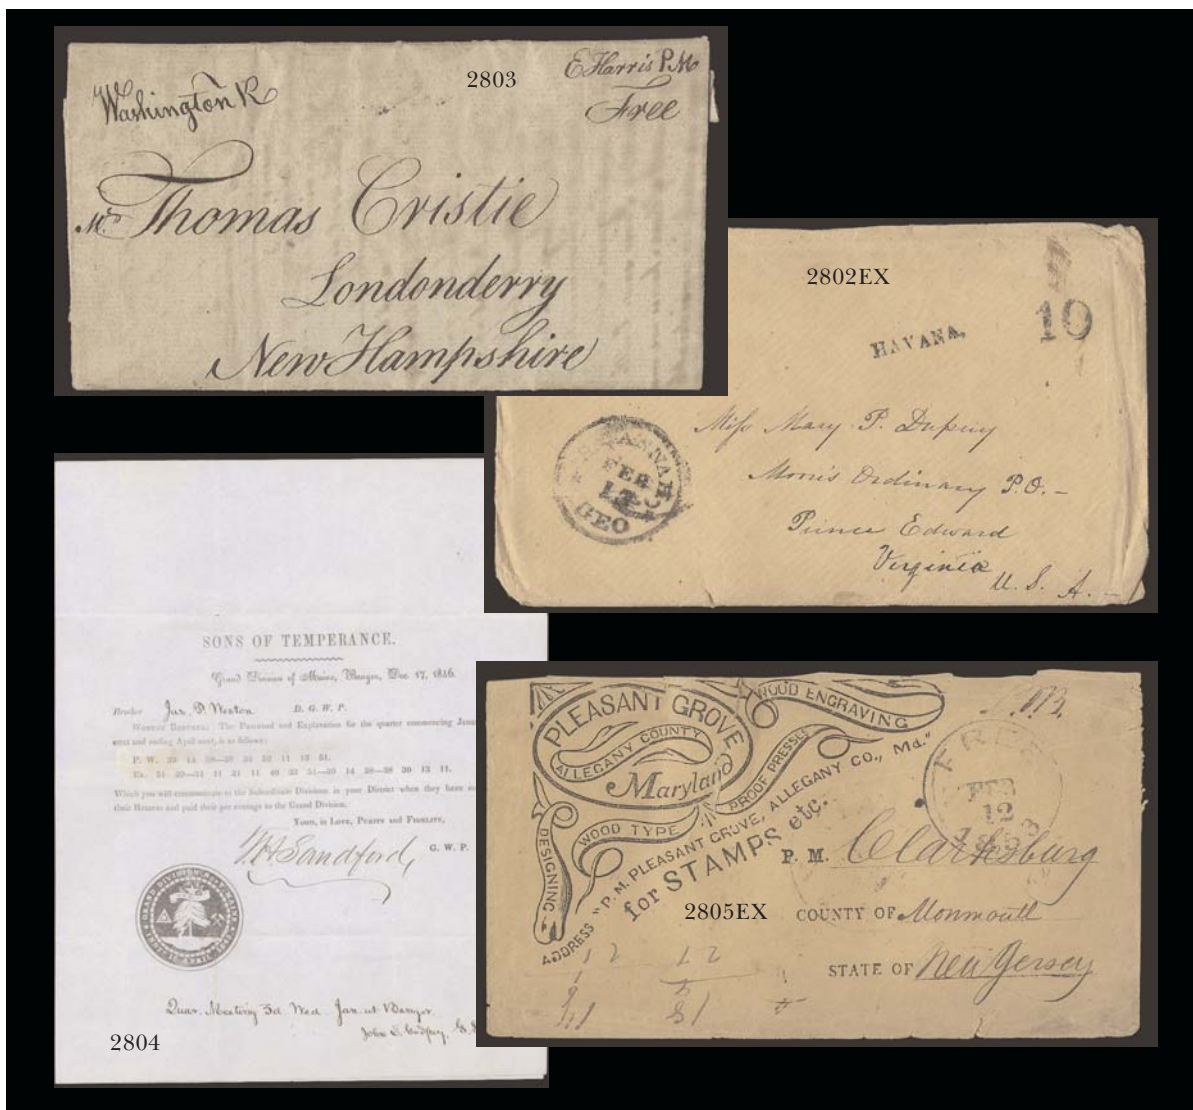 2803
Washington K
E Harris P.M
Free
Mr. Thomas Cristie
Londonderry
New Hampshire
2802EX
HAVANA.
10
SAVANNAH
FEB
GEO
Miss Mary P. Dupuy
Morris Ordinary P.O. –
Prince Edward
Virginia
U. S. A. –
SONS OF TEMPERANCE.
Grand Division of Maine, Bangor, Dec 17, 1846.
Brother Jas. P. Weston D. G. W. P.
WORTHY BROTHER: The Password and Explanation for the quarter commencing
next and ending April next, is as follows:
P. W.
Ex.
Which you will communicate to the Subordinate Divisions in your District when they have
their Returns and paid their per centage to the Grand Division.
Yours, in LOVE, PURITY and FIDELITY,
H Sandford, G. W. P.
GRAND DIVISION
APRIL
Quar. Meeting 3d. Wed. Jan. at Bangor.
John E. Godfrey,
2804
PLEASANT GROVE
ALLEGANY COUNTY
Maryland
WOOD ENGRAVING
PROOF PRESSES
WOOD TYPE
DESIGNING
ADDRESS "P.M. PLEASANT GROVE, ALLEGANY CO., Md."
for STAMPS etc.
FREE
FEB
12
P. M. Clarksburg
2805EX
COUNTY OF Monmouth
STATE OF New Jersey
12 12
81